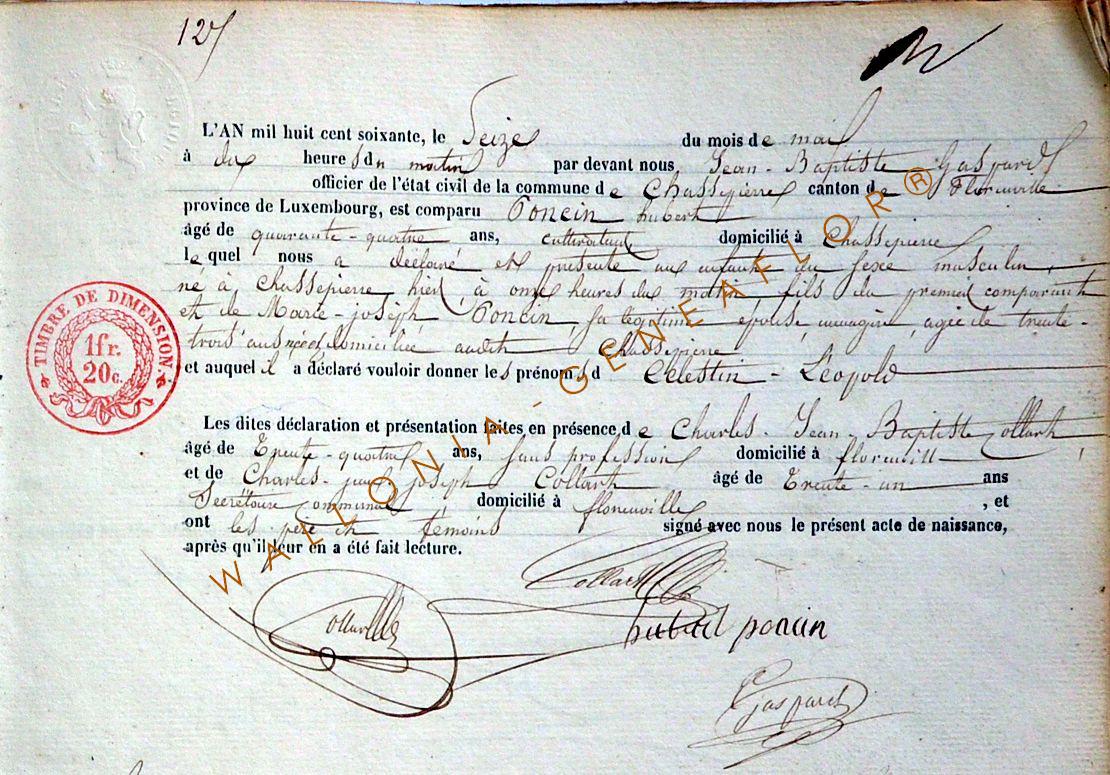 12
L'AN mil huit cent soixante, le Seize du mois de mai
à dix heures du matin par devant nous Jean-Baptiste Gaspard
officier de l'état civil de la commune de Chassepierre canton de Florenville
province de Luxembourg, est comparu Poncin hubert
âgé de quarante-quatre ans, cultivateur domicilié à Chassepierre
lequel nous a déclaré et présenté un enfant du sexe masculin,
né à Chassepierre hier à onze heures du matin, fils du premier comparant
et de Marie-joseph Poncin, sa légitime épouse, ménagère, agée de trente-
trois ans domiciliée audit Chassepierre
et auquel il a déclaré vouloir donner les prénoms d Célestin-Léopold
Les dites déclaration et présentation faites en présence de Charles-Jean-Baptiste Collart
âgé de Trente-quatre ans, sans profession domicilié à florenville
et de Charles- joseph Collart âgé de Trente-un ans
Secrétaire communal domicilié à florenville , et
ont les père et témoins signé avec nous le présent acte de naissance,
après qu'il leur en a été fait lecture.
TIMBRE DE DIMENSION
1fr.
20c.
Collart
Collart
hubert poncin
Gaspard
WALLONIA - GENEAFLOR ®